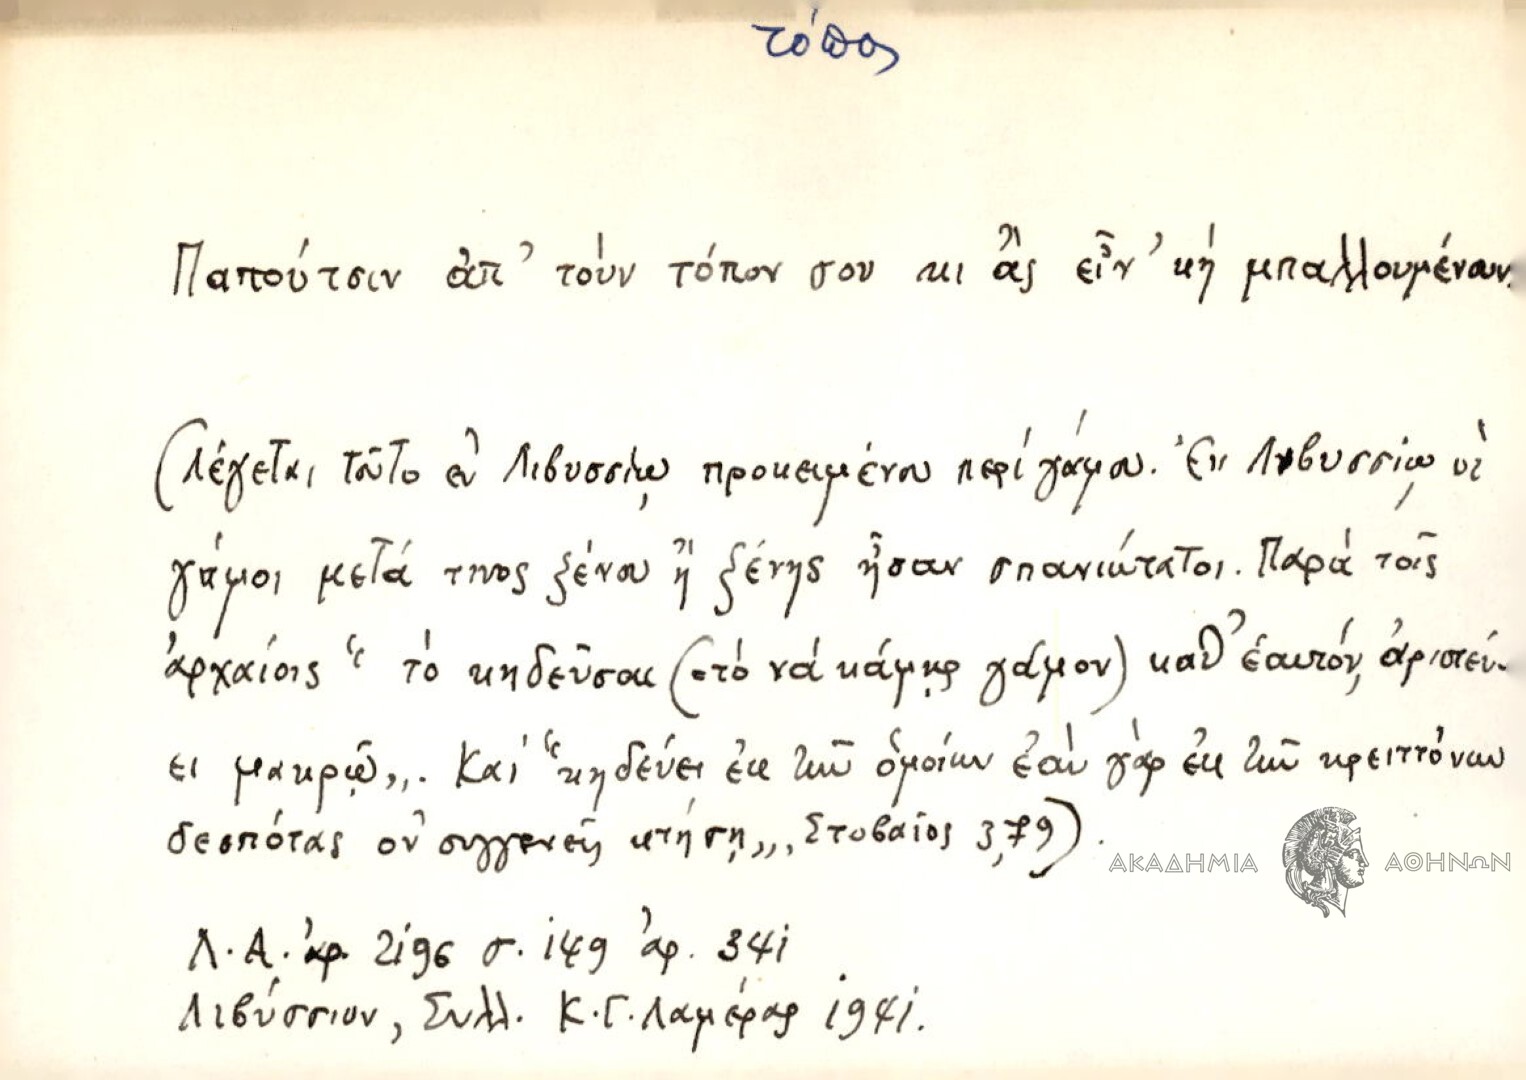 τόπος
Παπούτσιν ἀπ' τοὺν τόπον σου κι ἂς εἶν' κὴ μπαλλουμένουν.
(Λέγεται τοῦτο ἐν Λιβυσσίῳ προκειμένου περί γάμου. Ἐν Λιβυσσίῳ οἱ
γάμοι μετά τινος ξένου ἢ ξένης ἦσαν σπανιώτατοι. Παρά τοῖς
ἀρχαίοις "τὸ κηδεῦσαι (=τό νά κάμῃς γάμον) καθ' ἑαυτόν, ἀριστεύ-
ει μακρῷ". Καί "κηδεύει ἐκ τῶν ὁμοίων ἐὰν γὰρ ἐκ τῶν κρειττόνων
δεσπότας οὐ συγγενεῖς κτήσῃ", Στοβαῖος 3,79).
Λ.Α. ἀρ. 2196 σ. 149 ἀρ. 341
Λιβύσσιον, Συλλ. Κ.Γ. Λαμέρας 1941.
ΑΚΑΔΗΜΙΑ ΑΘΗΝΩΝ